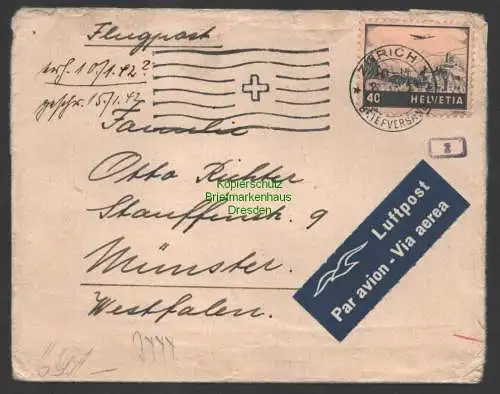 Flugpost
erh. 10/1.42?
geschr. 5/1.42
ZÜRICH
BRIEFVERSAND
40 HELVETIA
Familie
Otto Richter
Stauffenstr. 9
Münster.
Westfalen.
Kopierschutz
Briefmarkenhaus
Dresden
2
Luftpost
Par avion - Via aerea